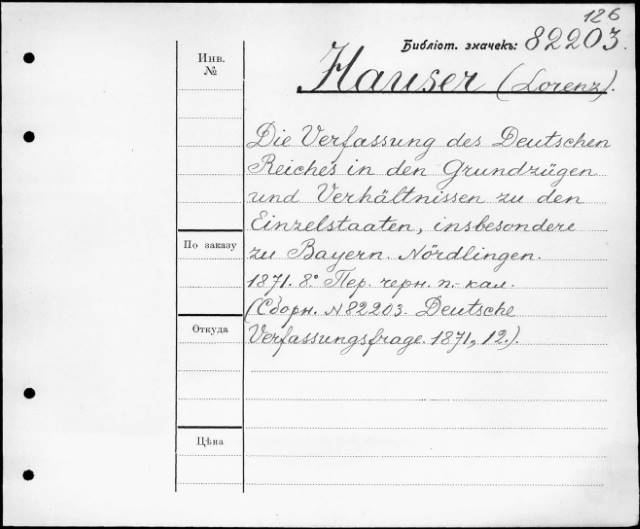 126
Библіот. значекъ: 82203.
Инв.
№
Hauser (Lorenz).
Die Verfassung des Deutschen
Reiches in den Grundzügen
und Verhältnissen zu den
Einzelstaaten, insbesondere
По заказу
zu Bayern. Nördlingen.
1871. 8.° Пер. черн. п.-кал.
(Сборн. N 82203. Deutsche
Откуда
Verfassungsfrage. 1871, 12.).
Цѣна